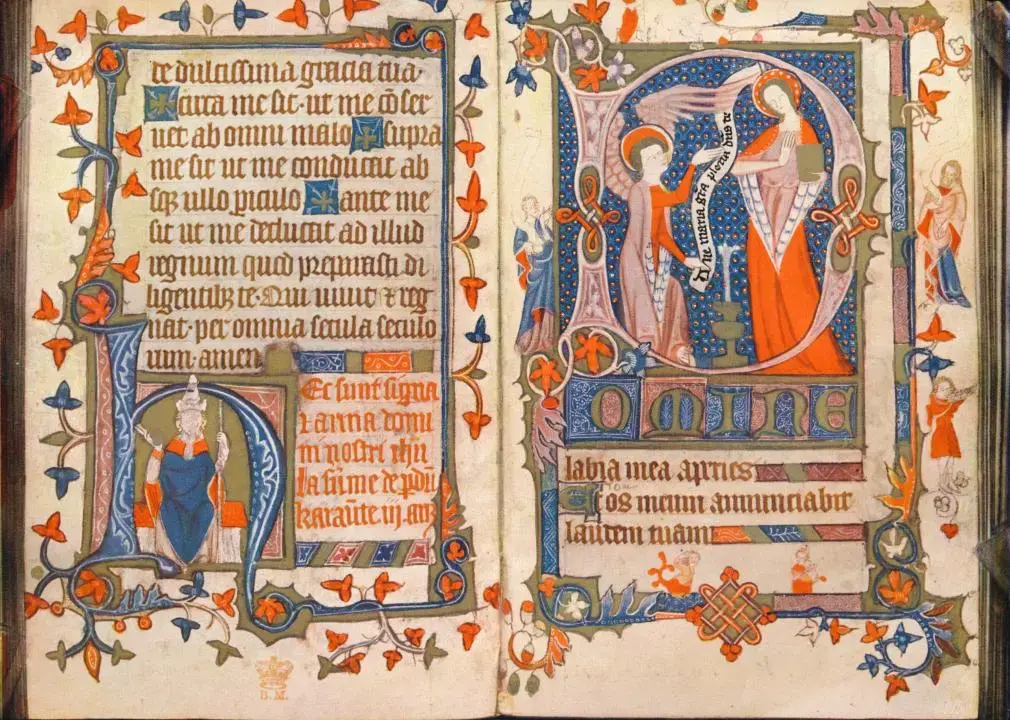 de dulcissima gracia tua·
circa me sit· ut me cōser
uet ab omni malo supra
me sit ut me conducat ab
sq̄ ullo p̄iculo ante me
sit ut me deducat ad illud
regnum quod preparasti di
ligentibꝫ te· Qui uiuit ⁊ reg
nat· per omnia secula seculo
rum· amen
Ec sunt signa
⁊ arma domi
ni nostri ihū
la sūme de pdū
karaūte iij. anz
B. M.
53
Aue maria grā plena dn̄s te
DOMINE
labia mea aperies
Et os meum annunciabit
laudem tuam